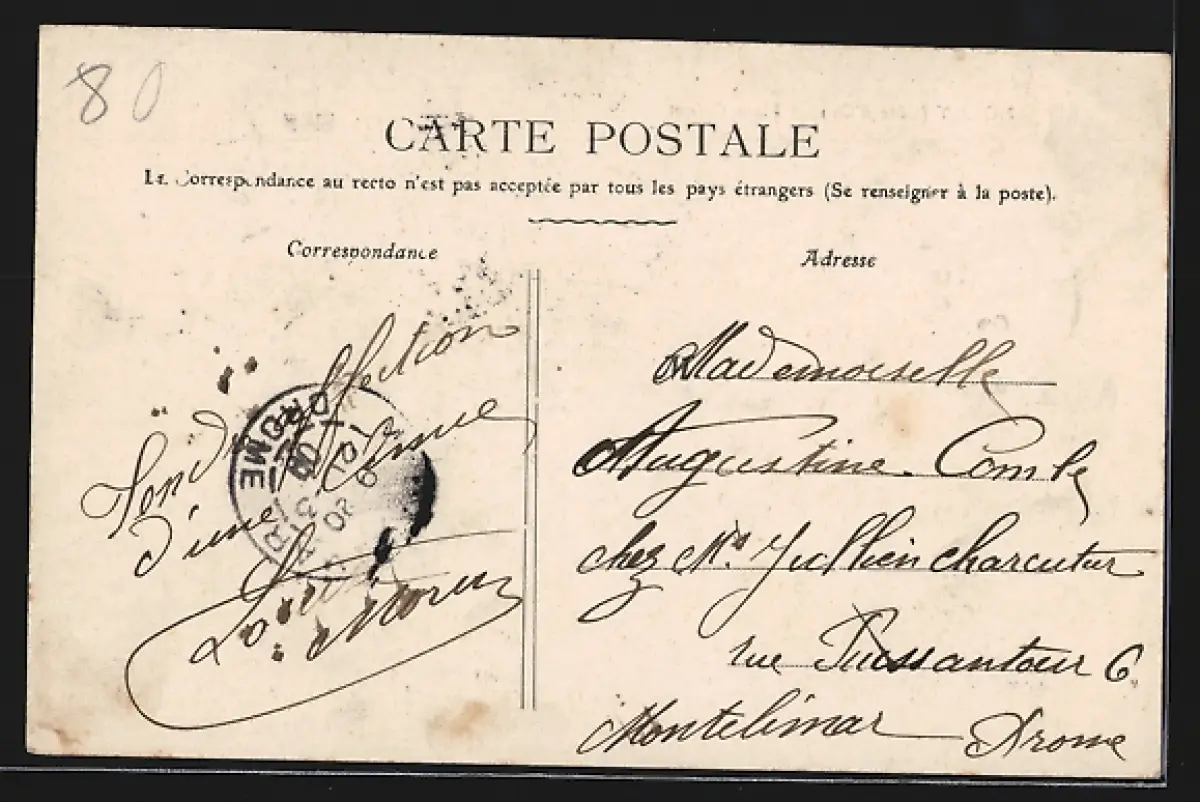 80
CARTE POSTALE
La Correspondance au recto n'est pas acceptée par tous les pays étrangers (Se renseigner à la poste).
Correspondance
Adresse
affection
d'une
DROME
Mademoiselle
Augustine Comte
chez Mr. Jullien charcutier
rue Puissantour 6
Montelimar Drome